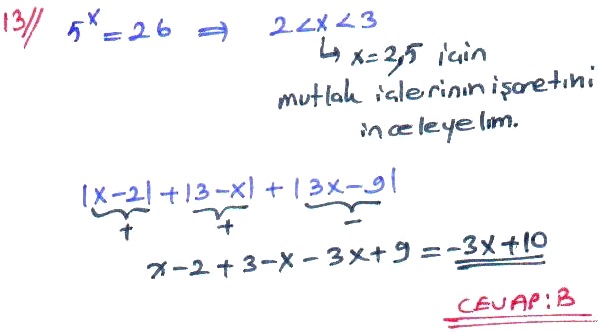 13// 5^x = 26 ⇒ 2<x<3
↳ x=2,5 için
mutlak içlerinin işaretini
inceleyelim.
|x-2| + |3-x| + |3x-9|
+ + -
x-2+3-x-3x+9 = -3x+10
CEVAP: B